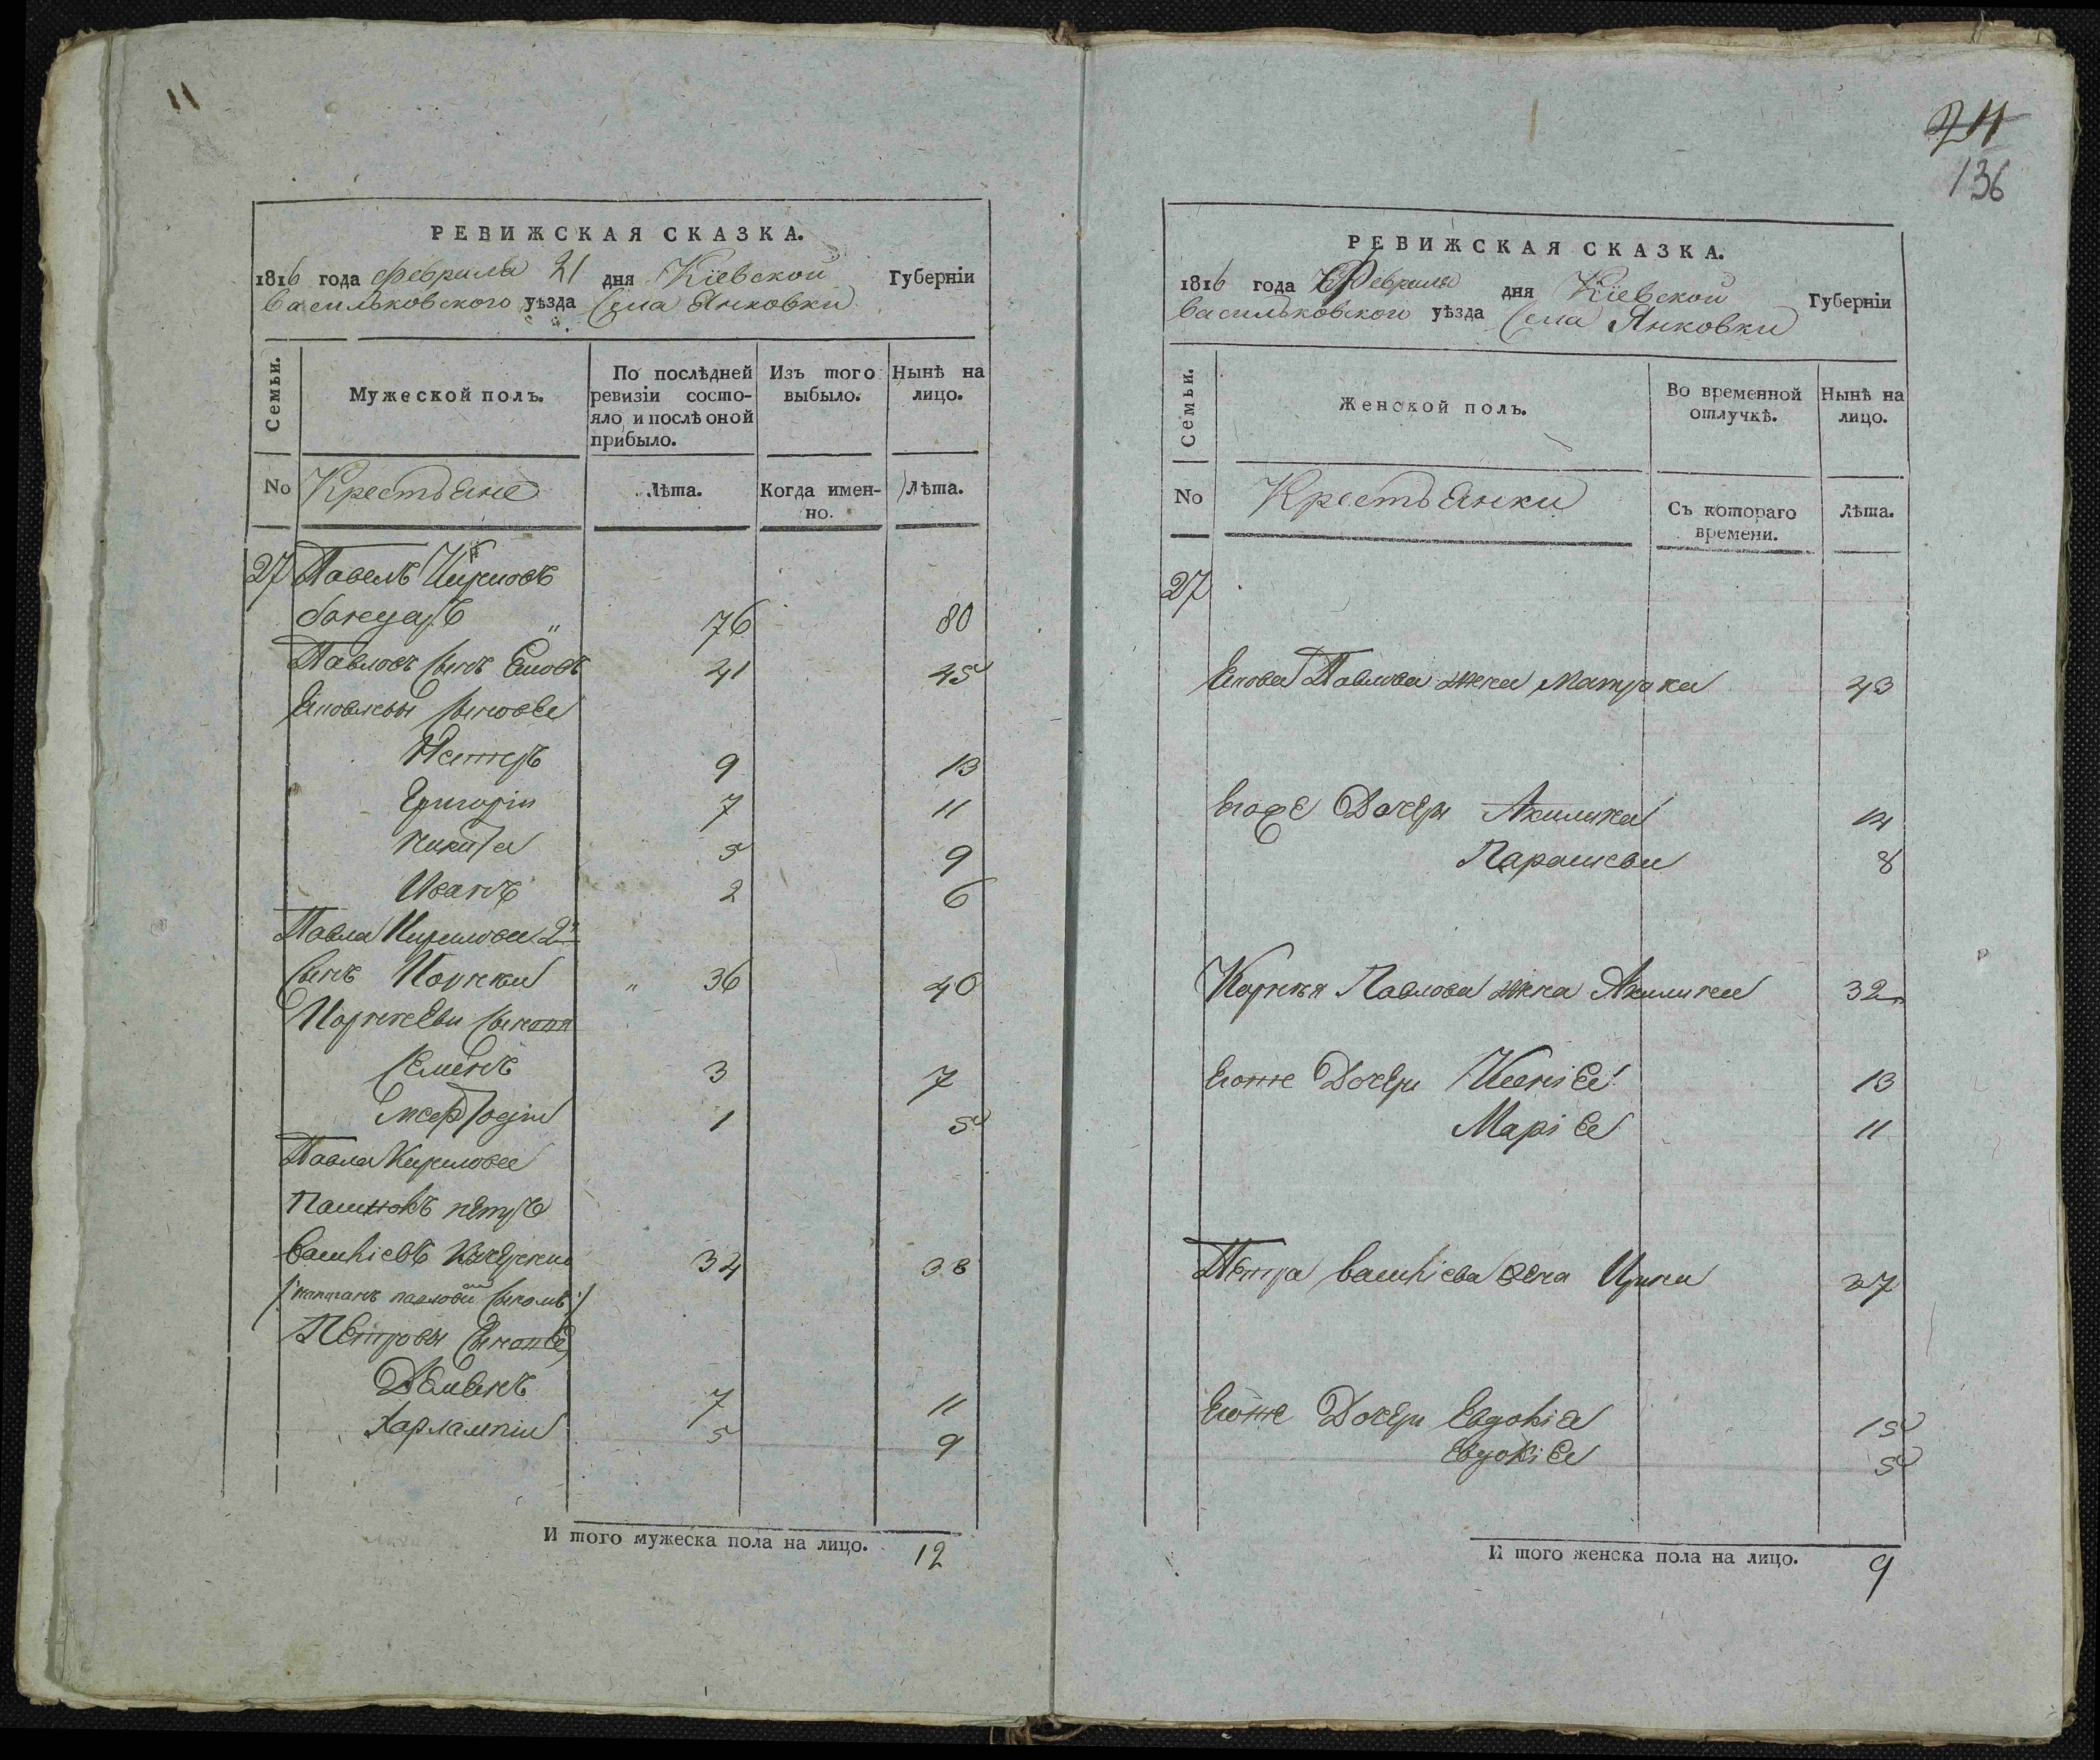 11
РЕВИЖСКАЯ СКАЗКА.
1816 года Февраля 21 дня Кіевской Губерніи
Васильковского уѣзда Села Янковки
Семьи.
Мужеской полъ.
По послѣдней ревизіи состояло и послѣ оной прибыло.
Изъ того выбыло.
Нынѣ на лицо.
No Крестьяне
Лѣта.
Когда именно.
Лѣта.
27 Павелъ Кириловъ
76 80
Павловъ сынъ 41 45
сынове
Нестеръ 9 13
Григорій 7 11
Никита 5 9
Иванъ 2 6
Павла Кирилова 2й
сынъ Корнѣй 36 40
Корнѣеви сынове
Семенъ 3 7
1 5
Павла Кирилова
Петръ
34 38
Петровы сынове
Демянъ 7 11
Харлампій 5 9
И того мужеска пола на лицо. 12
24
136
РЕВИЖСКАЯ СКАЗКА.
1816 года Февраля дня Кіевской Губерніи
Васильковского уѣзда Села Янковки
Семьи.
Женской полъ.
Во временной отлучкѣ.
Нынѣ на лицо.
No Крестьянки
Съ котораго времени.
Лѣта.
27
Павлова жена 43
Егоже Дочери Акилина 14
Параскеви 8
Корнѣя Павлова жена Акилина 32
Егоже Дочери Ксенія 13
Марія 11
Петра жена Ирина 37
Егоже Дочери Евдокія 15
Евдокія 5
И того женска пола на лицо. 9